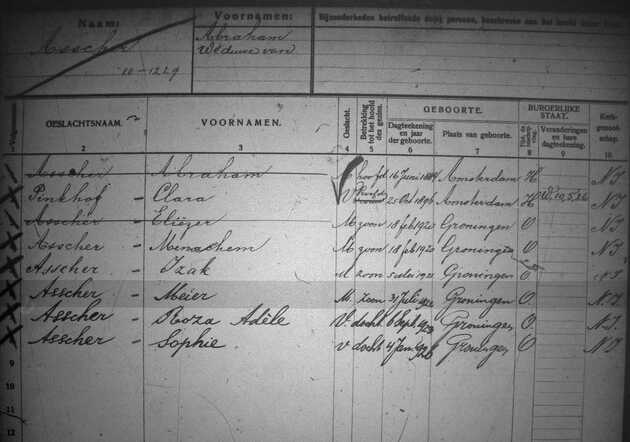 Naam: Voornamen: Bijzonderheden betreffende de(n) persoon,
Asscher Abraham
Weduwe van
10-1229
GEBOORTE. BURGERLIJKE STAAT. Kerk-genoot-schap.
Volgnummer. GESLACHTSNAAM. VOORNAMEN. Geslacht. Betrekking tot het hoofd des gezins. Dagteekening en jaar der geboorte. Plaats van geboorte. Veranderingen en hare dagteekening.
2 3 4 5 6 7 8 9 10
Asscher - Abraham hoofd 16 Juni Amsterdam H N.I.
Pinkhof - Clara V hoofd 25 Oct 1896 Amsterdam H W. 10.5.26 N.I.
Asscher - Eliëzer M zoon 18 feb 1920 Groningen O N.I.
Asscher - Menachem M zoon 18 feb 1920 Groningen O N.I.
Asscher - Izak M zoon Groningen O N.I.
Asscher - Meier M. zoon 31 Juli Groningen O N.I.
Asscher - Roza Adèle V. docht 6 Sept. 1923 Groningen O. N.I.
Asscher - Sophie V docht 4 Jan. 1926 Groningen O. N.I.
9
10
11
12